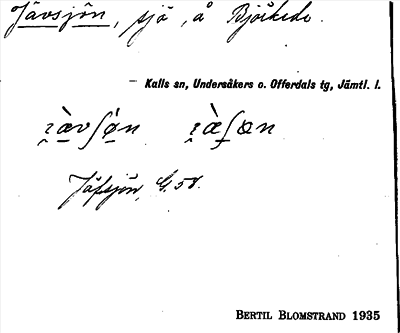 Jävsjön, sjö, å Björkede.
Kalls sn, Undersåkers o. Offerdals tg, Jämtl. l.
Jäfsjön, G. 58.
BERTIL BLOMSTRAND 1935